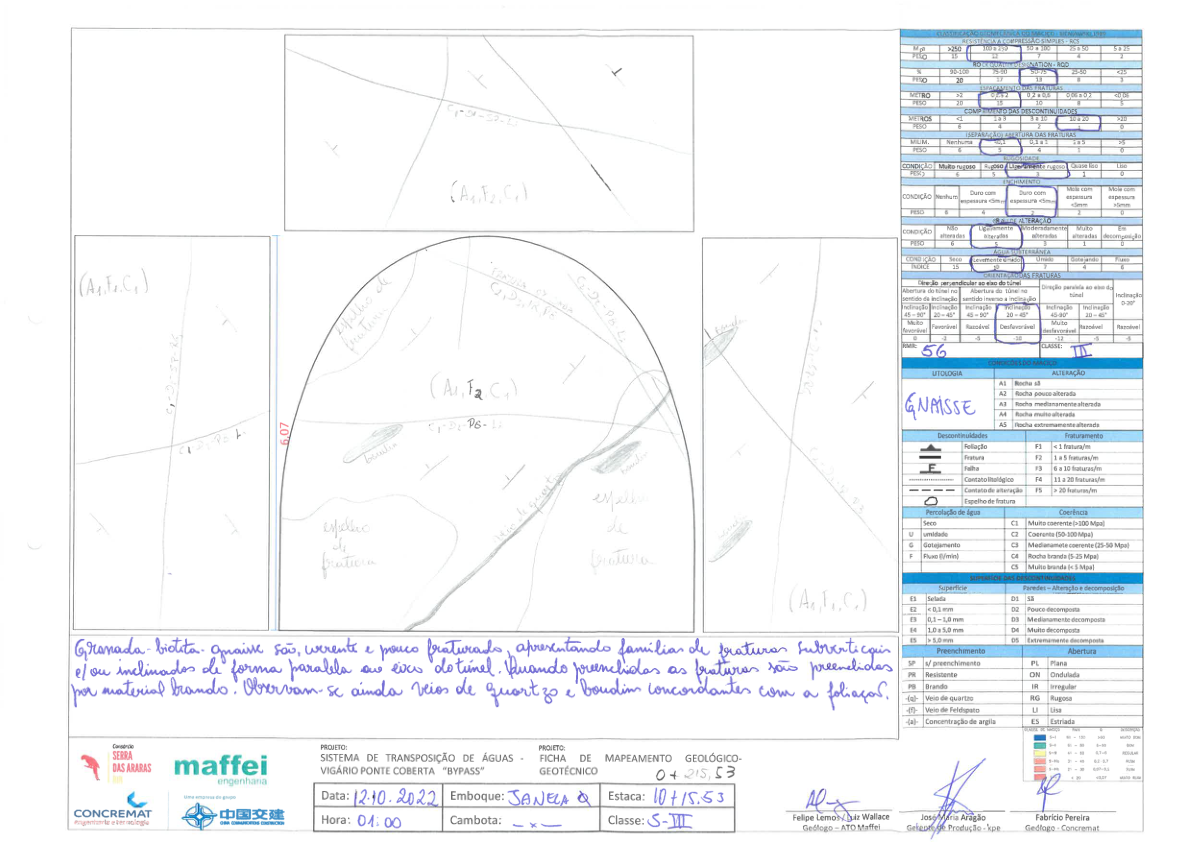 CLASSIFICAÇÃO GEOMECÂNICA DO MACIÇO - BIENIAWSKI 1989
RESISTÊNCIA À COMPRESSÃO SIMPLES - RCS
Mpa >250 100 a 250 50 a 100 25 a 50 5 a 25
PESO 15 12 7 4 2
ROCK QUALITY DESIGNATION - RQD
% 90-100 75-90 50-75 25-50 <25
PESO 20 17 13 8 3
ESPAÇAMENTO DAS FRATURAS
METRO >2 0,6 a 2 0,2 a 0,6 0,06 a 0,2 <0,06
PESO 20 15 10 8 5
COMPRIMENTO DAS DESCONTINUIDADES
METROS <1 1 a 3 3 a 10 10 a 20 >20
PESO 6 4 2 1 0
(SEPARAÇÃO) ABERTURA DAS FRATURAS
MILIM. Nenhuma <0,1 0,1 a 1 1 a 5 >5
PESO 6 5 4 1 0
RUGOSIDADE
CONDIÇÃO Muito rugoso Rugoso Ligeiramente rugoso Quase liso Liso
PESO 6 5 3 1 0
ENCHIMENTO
CONDIÇÃO Nenhum Duro com espessura <5mm Duro com espessura <5mm Mole com espessura <5mm Mole com espessura >5mm
PESO 6 4 2 2 0
GRAU DE ALTERAÇÃO
CONDIÇÃO Não alteradas Ligeiramente alteradas Moderadamente alteradas Muito alteradas Em decomposição
PESO 6 5 3 1 0
ÁGUA SUBTERRÂNEA
CONDIÇÃO Seco Levemente úmido Úmido Gotejando Fluxo
ÍNDICE 15 10 7 4 0
ORIENTAÇÃO DAS FRATURAS
Direção perpendicular ao eixo do túnel
Direção paralela ao eixo do túnel
Inclinação 0-20°
Abertura do túnel no sentido da inclinação
Abertura do túnel no sentido inverso a inclinação
Inclinação 45 – 90° Inclinação 20 – 45° Inclinação 45 – 90° Inclinação 20 – 45° Inclinação 45-90° Inclinação 20 – 45°
Muito favorável Favorável Razoável Desfavorável Muito desfavorável Razoável Razoável
0 -2 -5 -10 -12 -5 -5
RMR: 56 CLASSE: III
CONDIÇÕES DO MACIÇO
LITOLOGIA ALTERAÇÃO
GNAISSE
A1 Rocha sã
A2 Rocha pouco alterada
A3 Rocha medianamente alterada
A4 Rocha muito alterada
A5 Rocha extremamente alterada
Descontinuidades Fraturamento
Foliação F1 < 1 fratura/m
Fratura F2 1 a 5 fraturas/m
F Falha F3 6 a 10 fraturas/m
Contato litológico F4 11 a 20 fraturas/m
Contato de alteração F5 > 20 fraturas/m
Espelho de fratura
Percolação de água Coerência
Seco C1 Muito coerente (>100 Mpa)
U umidade C2 Coerente (50-100 Mpa)
G Gotejamento C3 Medianamete coerente (25-50 Mpa)
F Fluxo (l/min) C4 Rocha branda (5-25 Mpa)
C5 Muito branda (< 5 Mpa)
SUPERFÍCIE DAS DESCONTINUIDADES
Superfície Paredes – Alteração e decomposição
E1 Selada D1 Sã
E2 < 0,1 mm D2 Pouco decomposta
E3 0,1 – 1,0 mm D3 Medianamente decomposta
E4 1,0 a 5,0 mm D4 Muito decomposta
E5 > 5,0 mm D5 Extremamente decomposta
Preenchimento Abertura
SP s/ preenchimento PL Plana
PR Resistente ON Ondulada
PB Brando IR Irregular
-(q)- Veio de quartzo RG Rugosa
-(f)- Veio de Feldspato LI Lisa
-(a)- Concentração de argila ES Estriada
(A1, F2, C1)
(A1, F2, C1)
(A1, F2, C1)
6,07
boudin
boudin
espelho de fratura
espelho de fratura
(A1, F1, C1)
Granada-biotita-gnaisse são, coerente e pouco fraturado, apresentando famílias de fraturas subverticais
e/ou inclinadas de forma paralela ao eixo do túnel. Quando preenchidas as fraturas são preenchidas
por material brando. Observam-se ainda veios de quartzo e boudins concordantes com a foliação.
Consórcio
SERRA
DAS ARARAS
maffei
engenharia
CONCREMAT
engenharia e tecnologia
Uma empresa do grupo
中国交建
PROJETO:
SISTEMA DE TRANSPOSIÇÃO DE ÁGUAS - VIGÁRIO PONTE COBERTA "BYPASS"
PROJETO:
FICHA DE MAPEAMENTO GEOLÓGICO-GEOTÉCNICO
0+215,53
Data: 12.10.2022 Emboque: JANELA Estaca: 10+15.53
Hora: 01:00 Cambota: _x_ Classe: S-III
Felipe Lemos / Luiz Wallace
Geólogo – ATO Maffei
José Maria Aragão
Gerente de Produção - kpe
Fabrício Pereira
Geólogo - Concremat